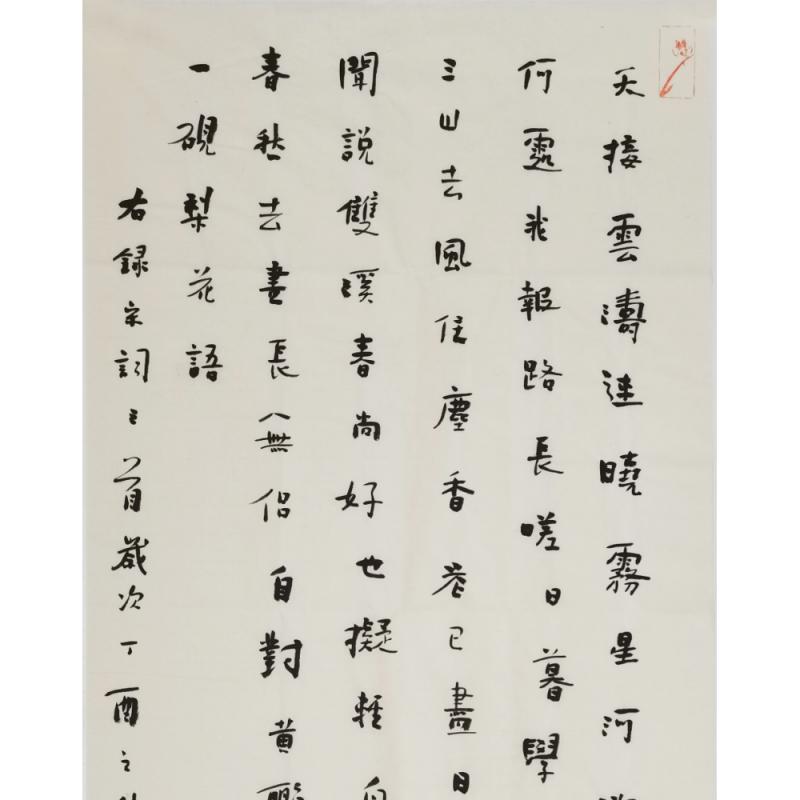 天接雲濤連曉霧星河
何處我報路長嗟日暮學
三山去風住塵香花已盡日
聞說雙溪春尚好也擬輕舟
春愁去晝長人無侶自對黃鸝
一硯梨花語
右録宋詞三首歲次丁酉之